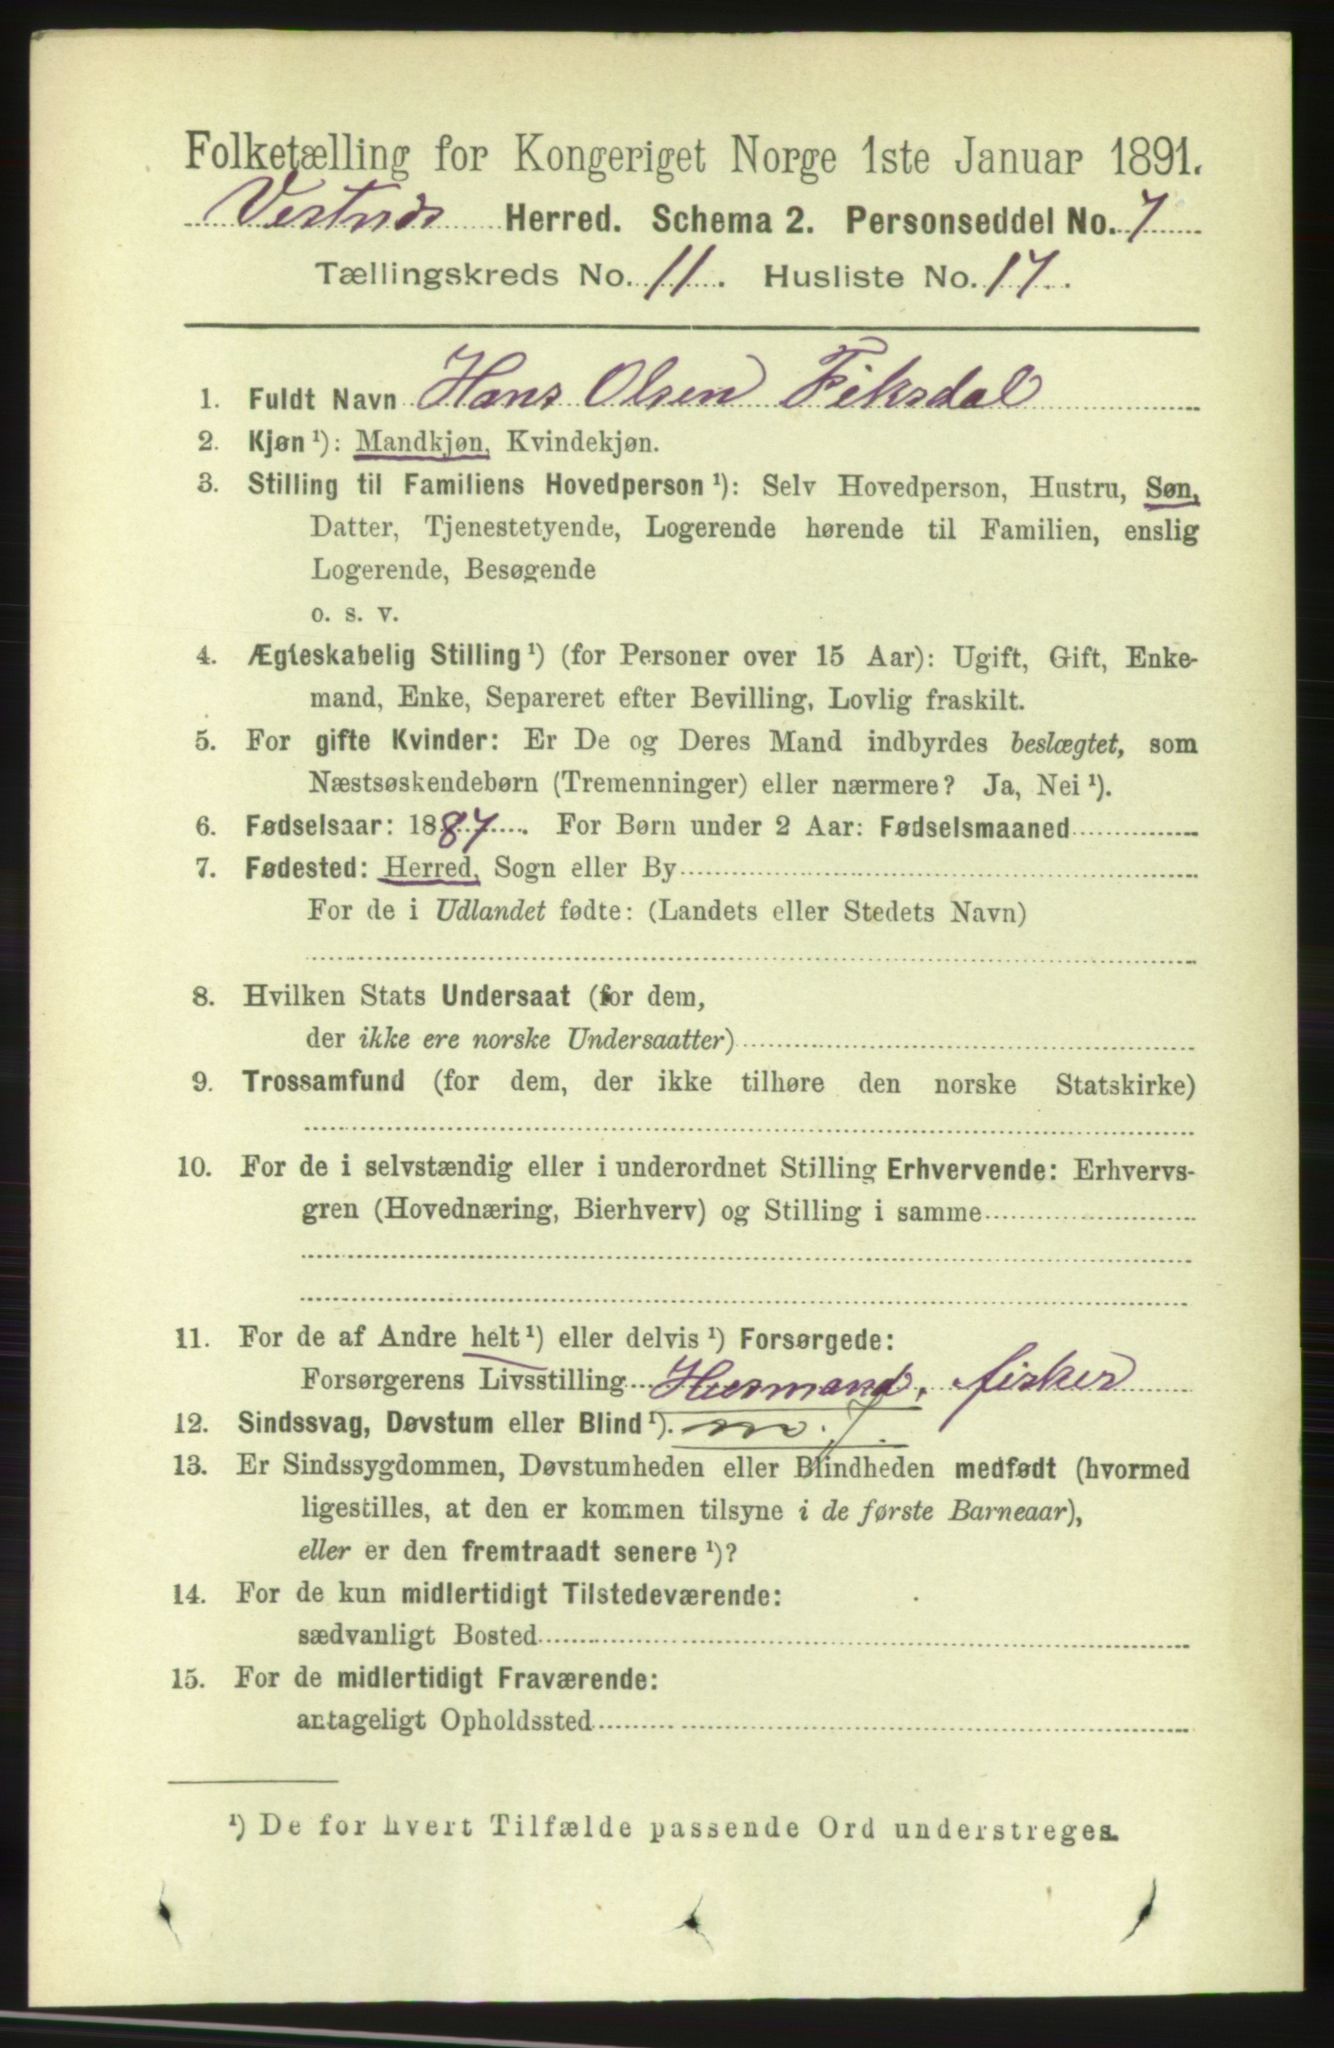 Folketælling for Kongeriget Norge 1ste Januar 1891.
Vestnes Herred. Schema 2. Personseddel No. 7
Tællingskreds No. 11. Husliste No. 17.
1. Fuldt Navn Hans Olsen Fiksdal
2. Kjøn ¹): Mandkjøn, Kvindekjøn.
3. Stilling til Familiens Hovedperson ¹): Selv Hovedperson, Hustru, Søn,
Datter, Tjenestetyende, Logerende hørende til Familien, enslig
Logerende, Besøgende
o. s. v.
4. Ægteskabelig Stilling ¹) (for Personer over 15 Aar): Ugift, Gift, Enke-
mand, Enke, Separeret efter Bevilling, Lovlig fraskilt.
5. For gifte Kvinder: Er De og Deres Mand indbyrdes beslægtet, som
Næstsøskendebørn (Tremenninger) eller nærmere? Ja, Nei ¹).
6. Fødselsaar: 1887. For Børn under 2 Aar: Fødselsmaaned
7. Fødested: Herred, Sogn eller By
For de i Udlandet fødte: (Landets eller Stedets Navn)
8. Hvilken Stats Undersaat (for dem,
der ikke ere norske Undersaatter)
9. Trossamfund (for dem, der ikke tilhøre den norske Statskirke)
10. For de i selvstændig eller i underordnet Stilling Erhvervende: Erhvervs-
gren (Hovednæring, Bierhverv) og Stilling i samme
11. For de af Andre helt ¹) eller delvis ¹) Forsørgede:
Forsørgerens Livsstilling Husmand, fisker
12. Sindssvag, Døvstum eller Blind ¹).
13. Er Sindssygdommen, Døvstumheden eller Blindheden medfødt (hvormed
ligestilles, at den er kommen tilsyne i de første Barneaar),
eller er den fremtraadt senere ¹)?
14. For de kun midlertidigt Tilstedeværende:
sædvanligt Bosted
15. For de midlertidigt Fraværende:
antageligt Opholdssted
¹) De for hvert Tilfælde passende Ord understreges.